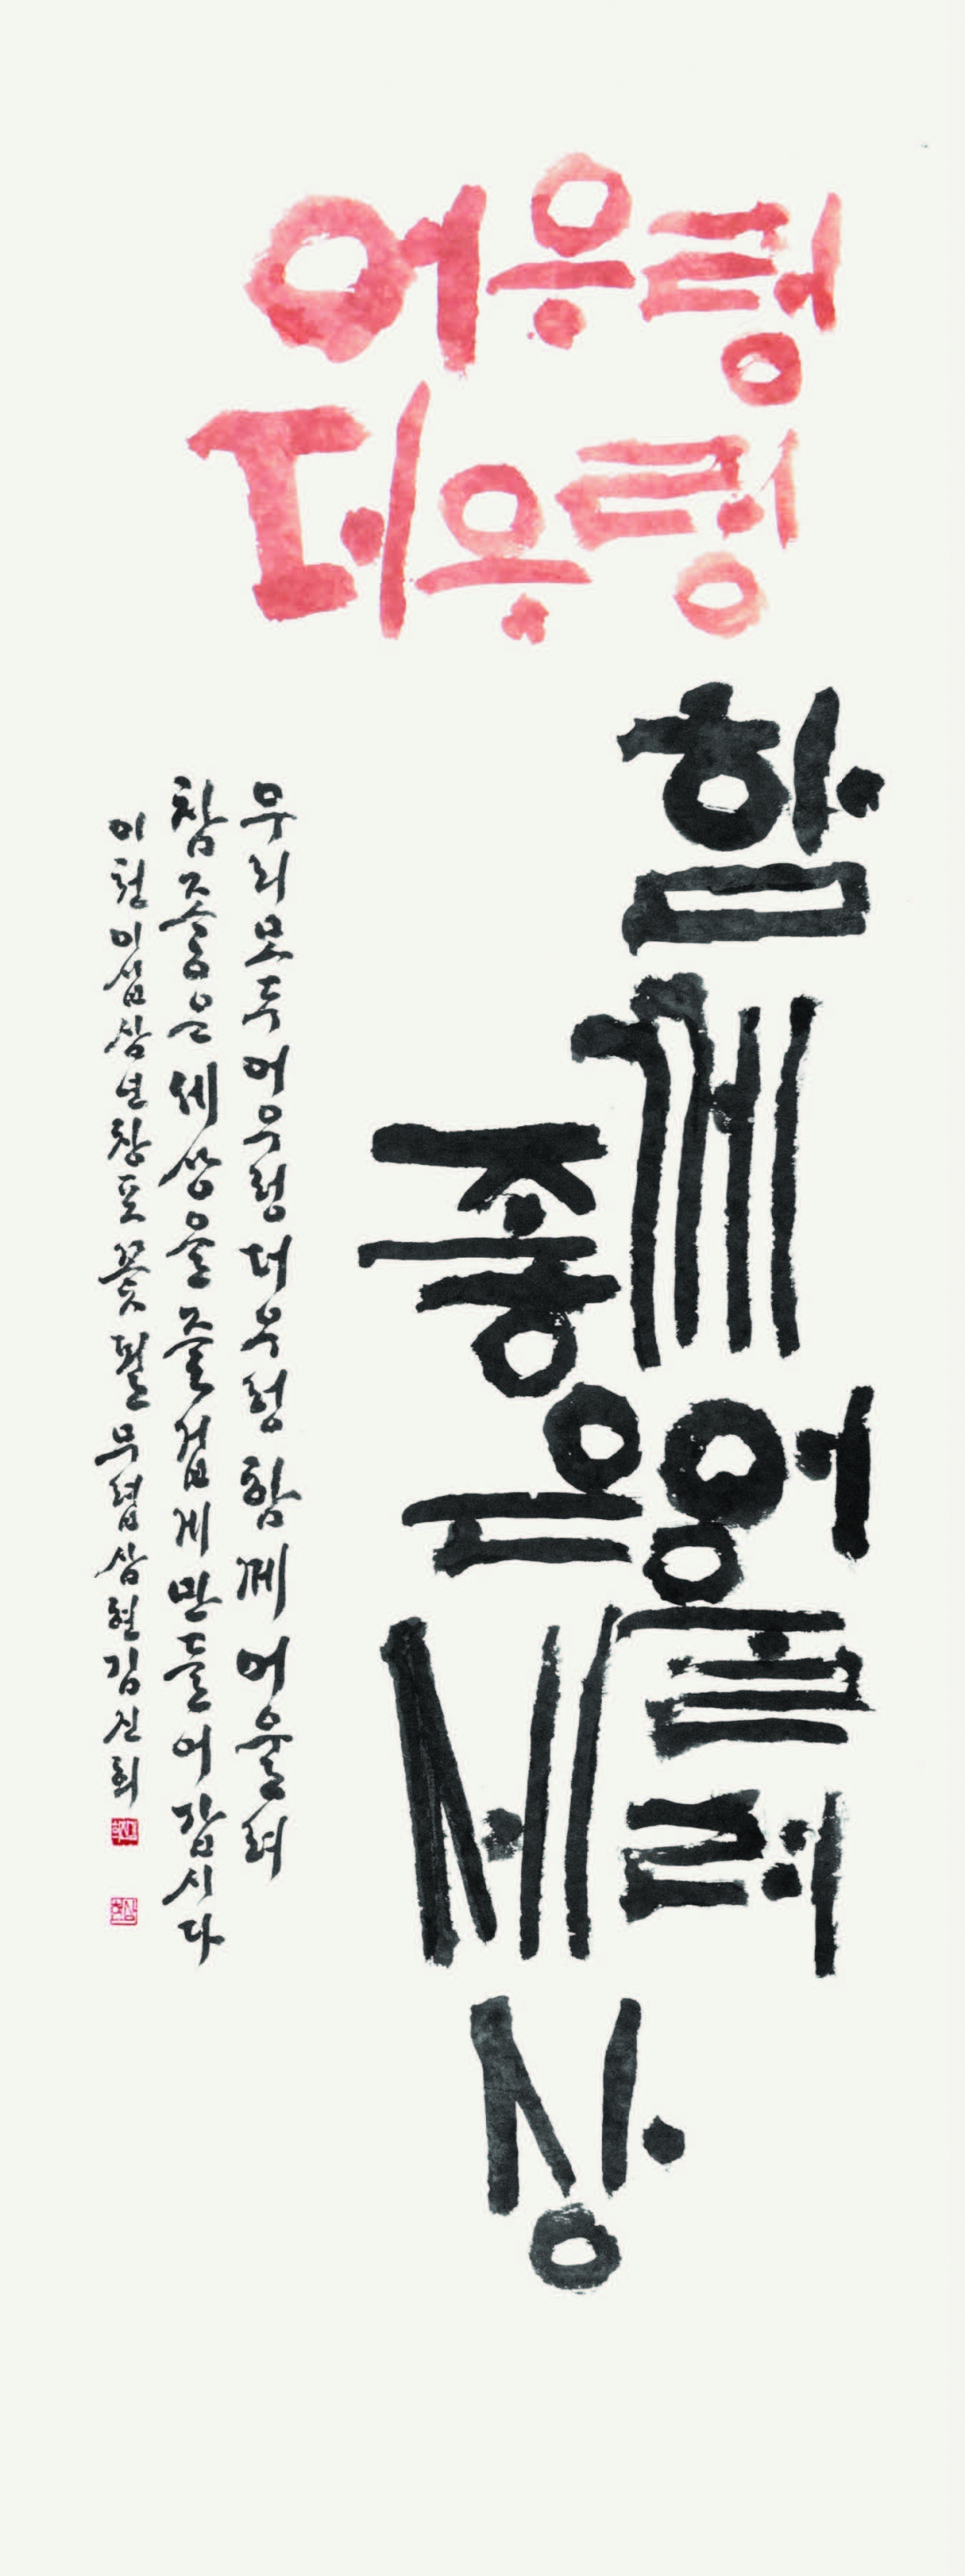 어우렁
더우렁
함께 어울려
좋은 세상
우리모두어우렁더우렁함께어울려
참좋은세상을즐겁게만들어갑시다
이천이십삼년창포꽃필무렵삼현김진희